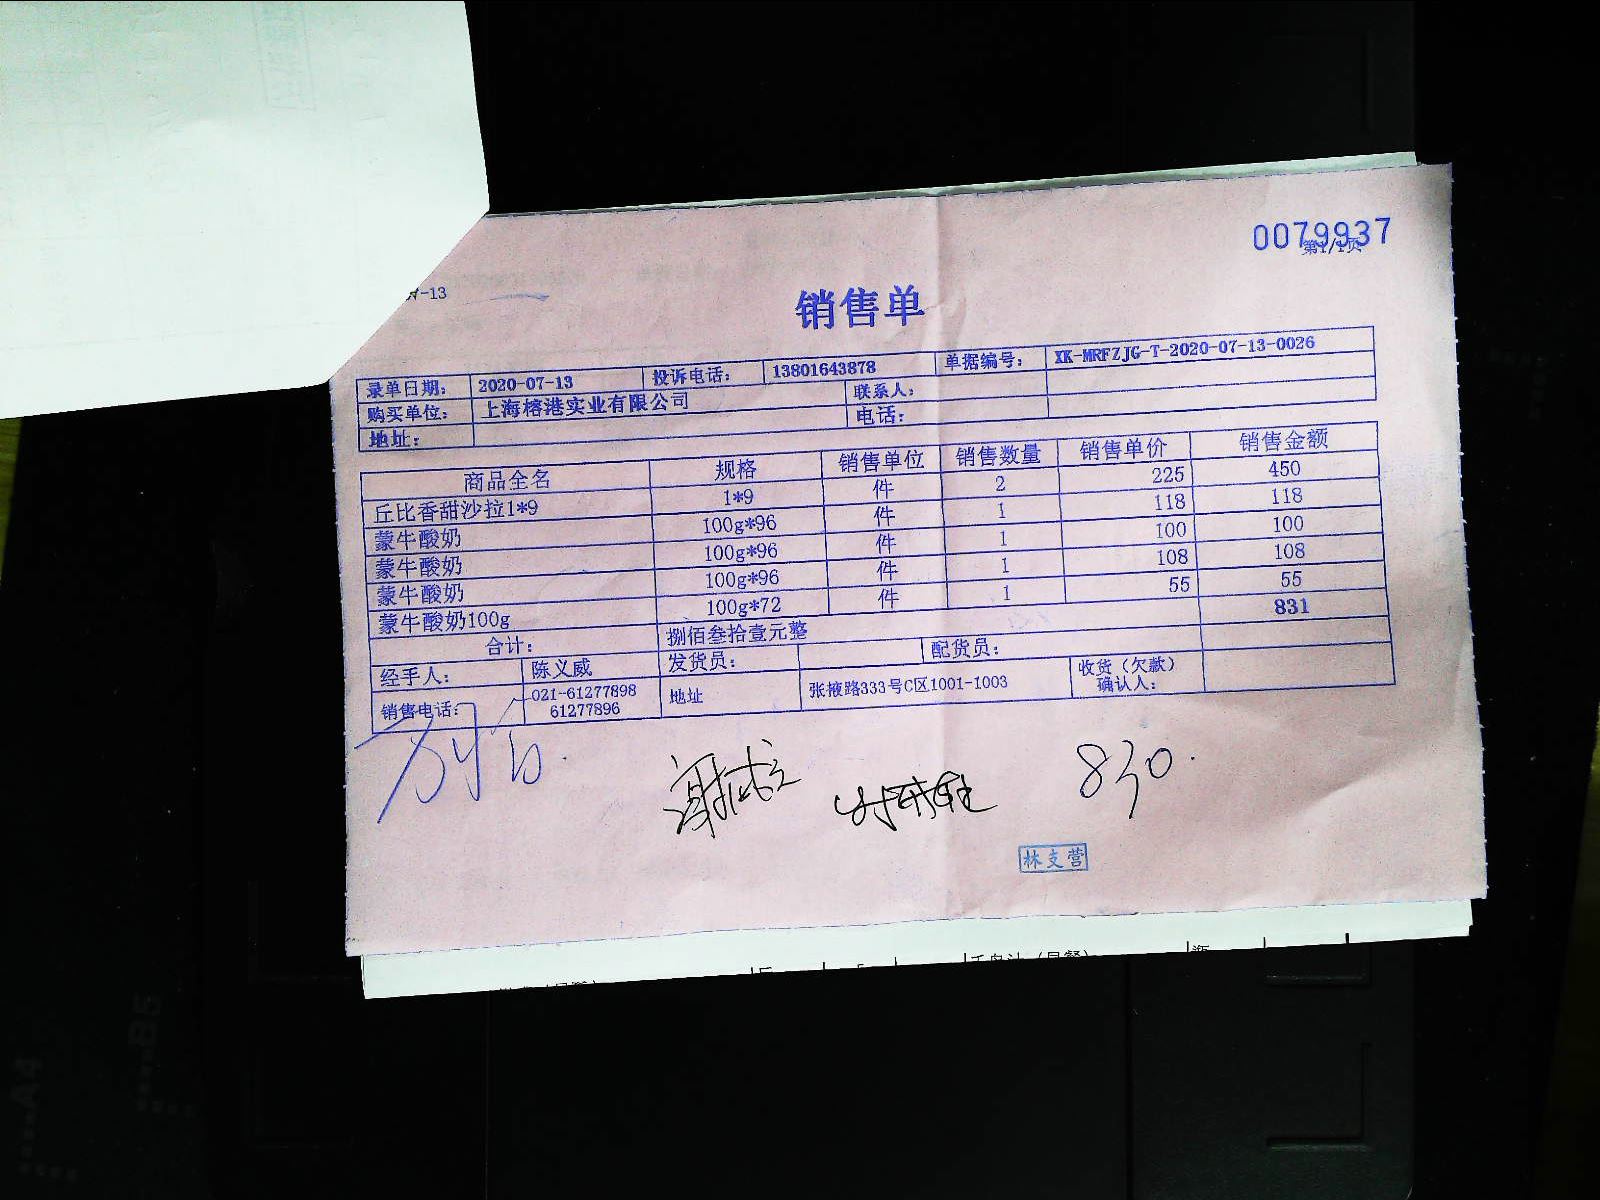 0079937
第1/1页
-13
销售单
录单日期： 2020-07-13 投诉电话： 13801643878 单据编号： XK-MRFZJG-T-2020-07-13-0026
购买单位： 上海榕港实业有限公司 联系人：
地址： 电话：
商品全名 规格 销售单位 销售数量 销售单价 销售金额
丘比香甜沙拉1*9 1*9 件 2 225 450
蒙牛酸奶 100g*96 件 1 118 118
蒙牛酸奶 100g*96 件 1 100 100
蒙牛酸奶 100g*96 件 1 108 108
蒙牛酸奶100g 100g*72 件 1 55 55
合计： 捌佰叁拾壹元整 831
经手人： 陈义威 发货员： 配货员：
销售电话： 021-61277898 地址 张掖路333号C区1001-1003 收货（欠款）
61277896 确认人：
830.
林支营